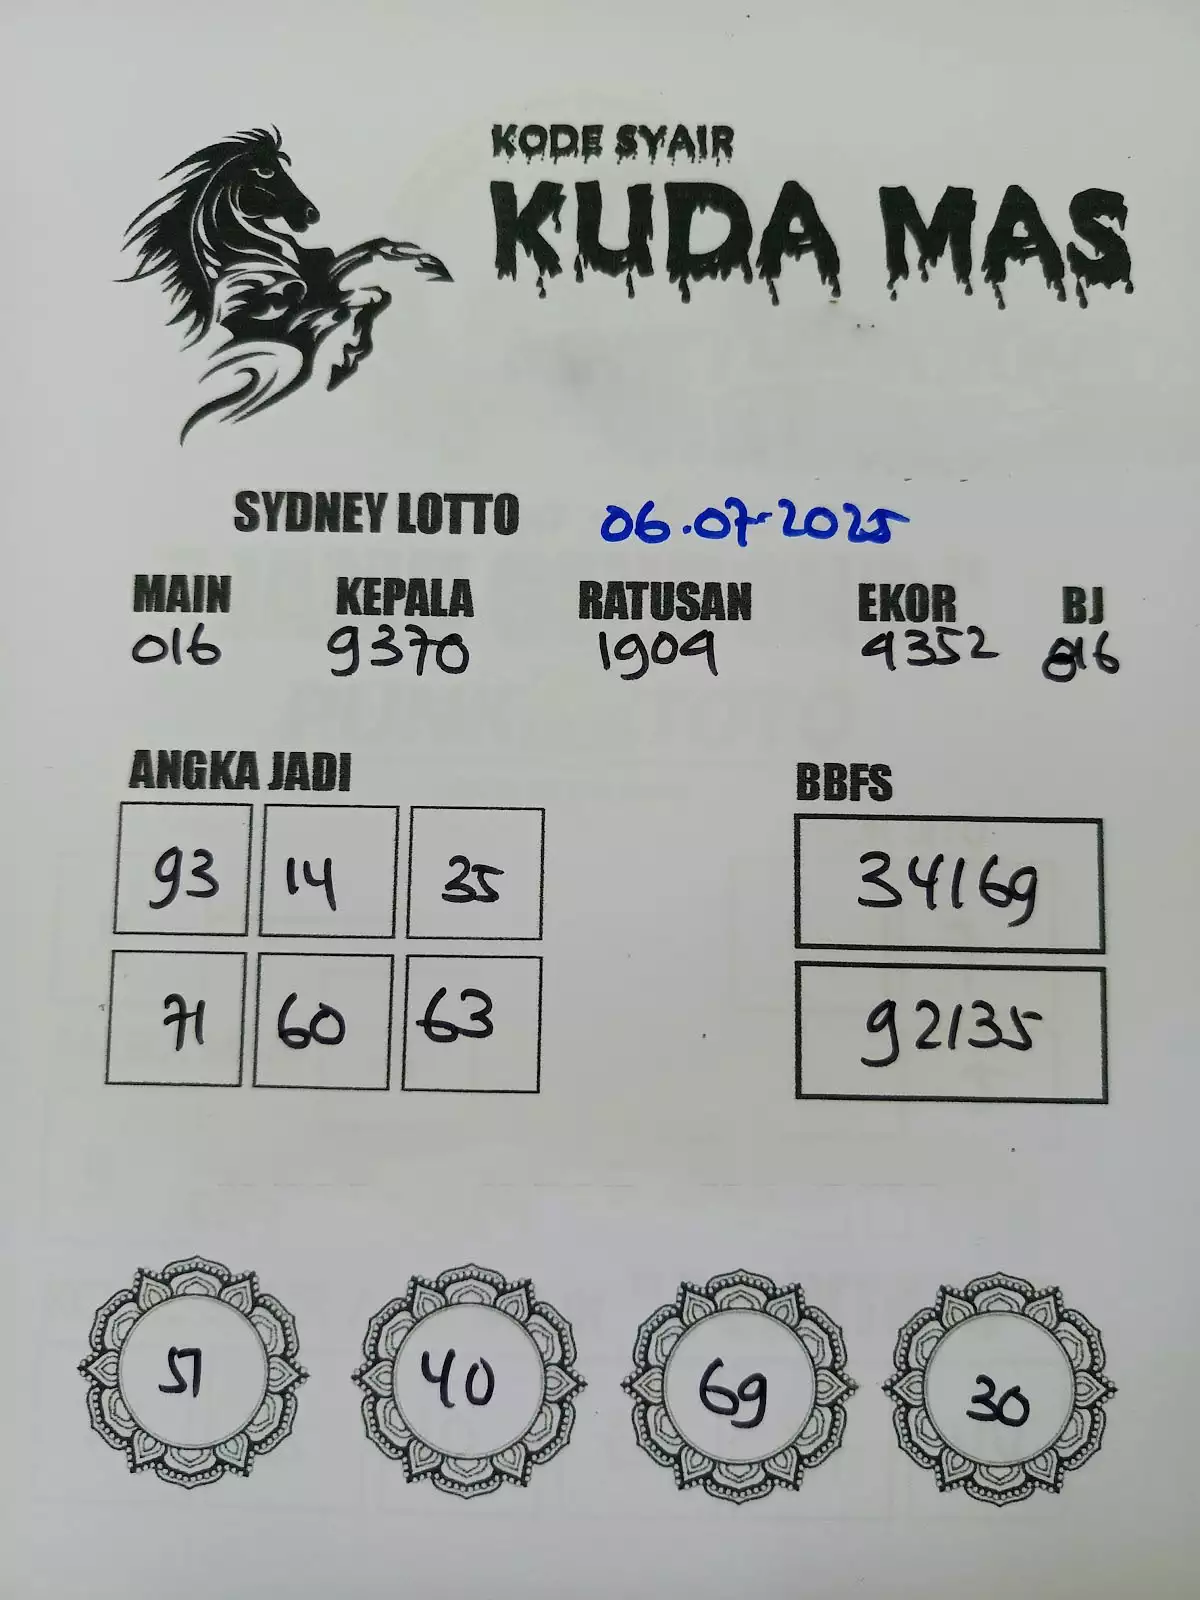 KODE SYAIR
KUDA MAS
SYDNEY LOTTO 06.07-2025
MAIN KEPALA RATUSAN EKOR BJ
016 9370 1909 9352 016
ANGKA JADI BBFS
93 14 35 34169
71 60 63 92135
51 40 69 30